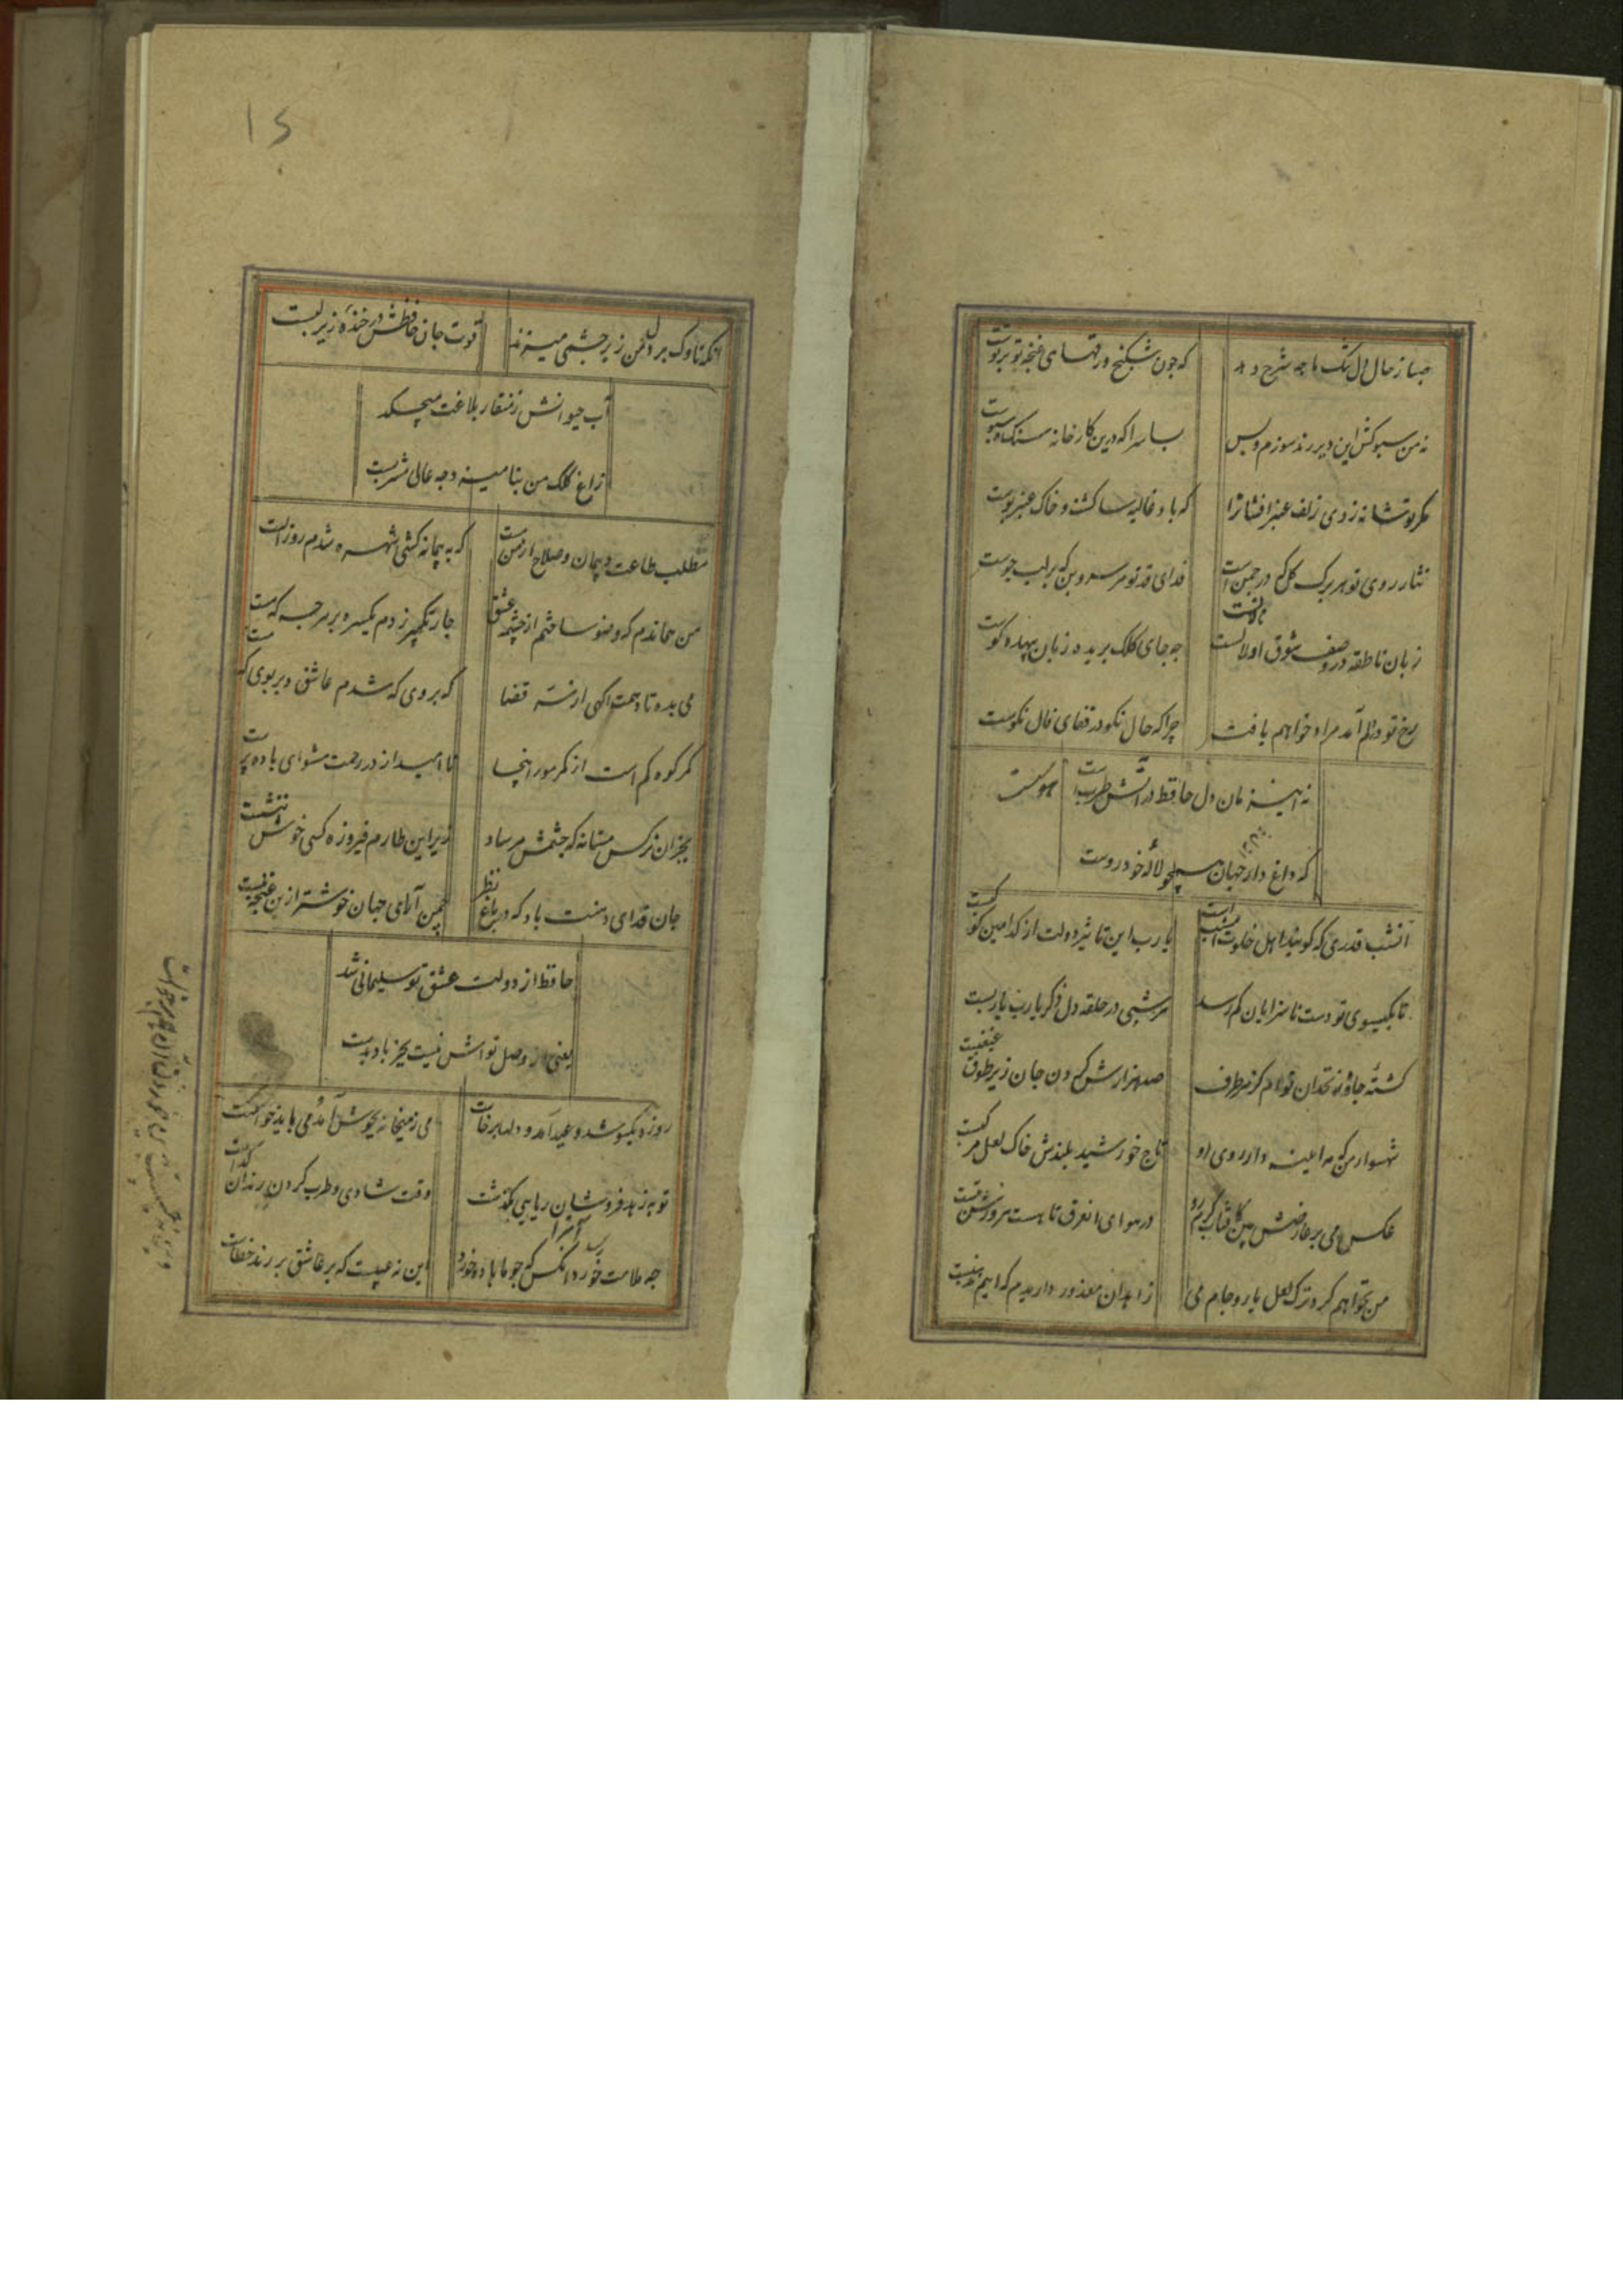 صبا ز حال دل تنگ ما چه شرح دهد که چون شکنج ورقهای غنچه تو بر توست
نه من سبوکش این دیر رند سوزم و بس بسا سرا که درین کارخانه سنگ و سبوست
مگر تو شانه زدی زلف عنبر افشانرا که باد غالیه سا گشت و خاک عنبر بوست
نثار روی تو هر برگ گل که در چمن است فدای قد تو هر سروبن که بر لب جوست
زبان ناطقه در وصف شوق او لالست چه جای کلک بریده زبان بیهده گوست
رخ تو در دلم آمد مراد خواهم یافت چرا که حال نکو در قفای فال نکوست
نه این زمان دل حافظ در آتش طرب است
که داغ دار جهان همچو لاله خود روست
آنشب قدری که گویند اهل خلوت امشب است یا رب این تاثیر دولت از کدامین کوکبست
تا بگیسوی تو دست ناسزایان کم رسد هر شبی در حلقه دل ذکر یا رب یا ربست
کشته چاه زنخدان توام کز هر طرف صد هزارش گردن جان زیر طوق غبغبست
شهسوار من که مه آینه دار روی او تاج خورشید بلندش خاک لعل مرکبست
عکس می بر عارضش بین کافتاب گرم رو در هوای آن عرق تا هست هر روزش تبست
من نخواهم کرد ترک لعل یار و جام می زاهدان معذور داریدم که اینم مذهبست
۱۵
آنکه ناوک بر دل من زیر چشمی میزند قوت جان حافظش در خنده زیر لبست
آب حیوانش ز منقار بلاغت میچکد
زاغ کلک من بنامیزد چه عالی مشربست
مطلب طاعت و پیمان و صلاح از من مست که به پیمانه کشی شهره شدم روز الست
من هماندم که وضو ساختم از چشمه عشق چار تکبیر زدم یکسره بر هر چه که هست
می بده تا دهمت آگهی از سر قضا که بروی که شدم عاشق و بر بوی که مست
کمر کوه کم است از کمر مور اینجا نا امید از در رحمت مشو ای باده پرست
بجز آن نرگس مستانه که چشمش مرساد زیر این طارم فیروزه کسی خوش ننشست
جان فدای دهنت باد که در باغ نظر چمن آرای جهان خوشتر ازین غنچه نبست
حافظ از دولت عشق تو سلیمانی شد
یعنی از وصل تواش نیست بجز باد بدست
روزه یکسو شد و عید آمد و دلها برخاست می ز میخانه بجوش آمد و می باید خواست
توبه زهد فروشان ریایی بگذشت وقت شادی و طرب کردن رندان پیداست
چه ملامت رسد آنرا که چو ما باده خورد این نه عیبست که بر عاشق بر رند خطاست